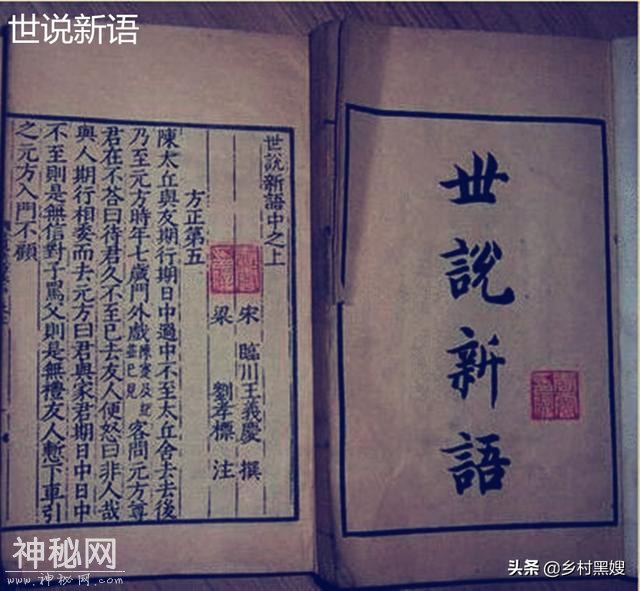 世说新语
世說新語
世說新語中之上
宋 臨川王義慶 撰
梁 劉孝標 注
方正第五
陳太丘與友期行期日中過中不至太丘舍去去後
乃至元方時年七歲門外戲陳寔及紀並已見客問元方尊
君在不答曰待君久不至已去友人便怒曰非人哉
與人期行相委而去元方曰君與家君期日中日中
不至則是無信對子罵父則是無禮友人慙下車引
之元方入門不顧
神秘网
www.神秘网.COM
头条 @乡村黑嫂